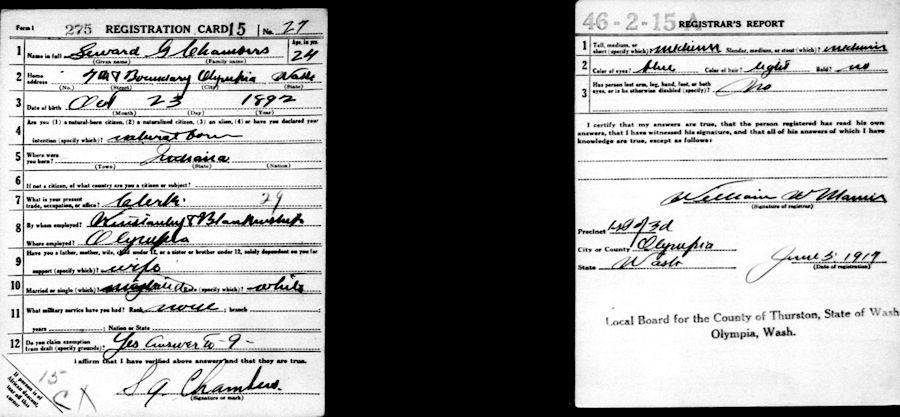 Form 1 275 REGISTRATION CARD 15 No. 27
1 Name in full Seward G Chambers Age, in yrs.
(Given name) (Family name) 24
2 Home address 7th & Boundary Olympia Wash
(No.) (Street) (City) (State)
3 Date of birth Oct 23 1892
(Month) (Day) (Year)
4 Are you (1) a natural-born citizen, (2) a naturalized citizen, (3) an alien, (4) or have you declared your
intention (specify which)? natural born
5 Where were you born? Indiana
(Town) (State) (Nation)
6 If not a citizen, of what country are you a citizen or subject?
7 What is your present trade, occupation, or office? Clerk 29
8 By whom employed? &
Where employed? Olympia
9 Have you a father, mother, wife, child under 12, or a sister or brother under 12, solely dependent on you for
support (specify which)? wife
10 Married or single (which)? married Race (specify which)? white
11 What military service have you had? Rank none ; branch
years ; Nation or State
12 Do you claim exemption from draft (specify grounds)? Yes answer to -9-
I affirm that I have verified above answers and that they are true.
S G Chambers.
(Signature or mark)
If person is of African descent, tear off this corner
15
46-2-15 A REGISTRAR'S REPORT
1 Tall, medium, or short (specify which)? medium Slender, medium, or stout (which)? medium
2 Color of eyes? blue Color of hair? light Bald? no
3 Has person lost arm, leg, hand, foot, or both eyes, or is he otherwise disabled (specify)? No
I certify that my answers are true, that the person registered has read his own
answers, that I have witnessed his signature, and that all of his answers of which I have
knowledge are true, except as follows:
William W
(Signature of registrar)
Precinct 3d
City or County Olympia
State Wash June 5 1917
(Date of registration)
Local Board for the County of Thurston, State of Wash
Olympia, Wash.